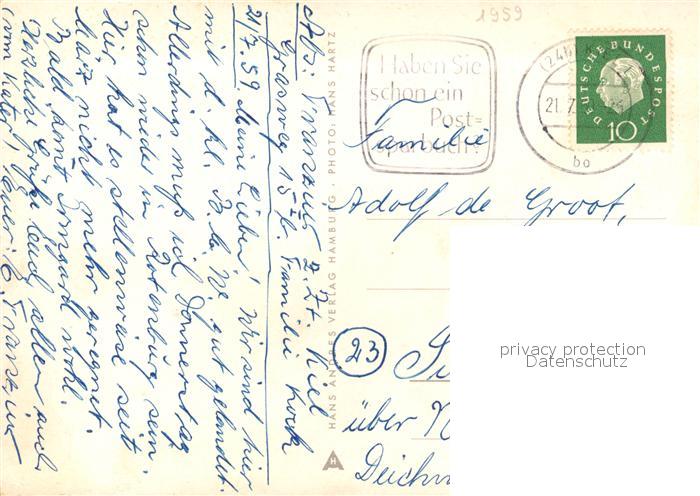 1959
Haben Sie
schon ein
Post=
sparbuch?
(24b)
21.7.
bo
DEUTSCHE BUNDESPOST
10
Familie
Adolf de Groot,
23
über N
Deichw
privacy protection
Datenschutz
HANS ANDRES VERLAG HAMBURG · PHOTO: HANS HARTZ
Abs.: z. Zt. Kiel
Grasweg 15 b. Familie Koch
21.7.59. Meine Lieben! Wir sind hier
mit d. kl. gut gelandet.
Allerdings muß ich Donnerstag
schon wieder in Rotenburg sein.
Hier hat es stellenweise seit
März nicht mehr geregnet.
Bald kommt Irmgard wohl.
Herzliche Grüße Euch allen auch